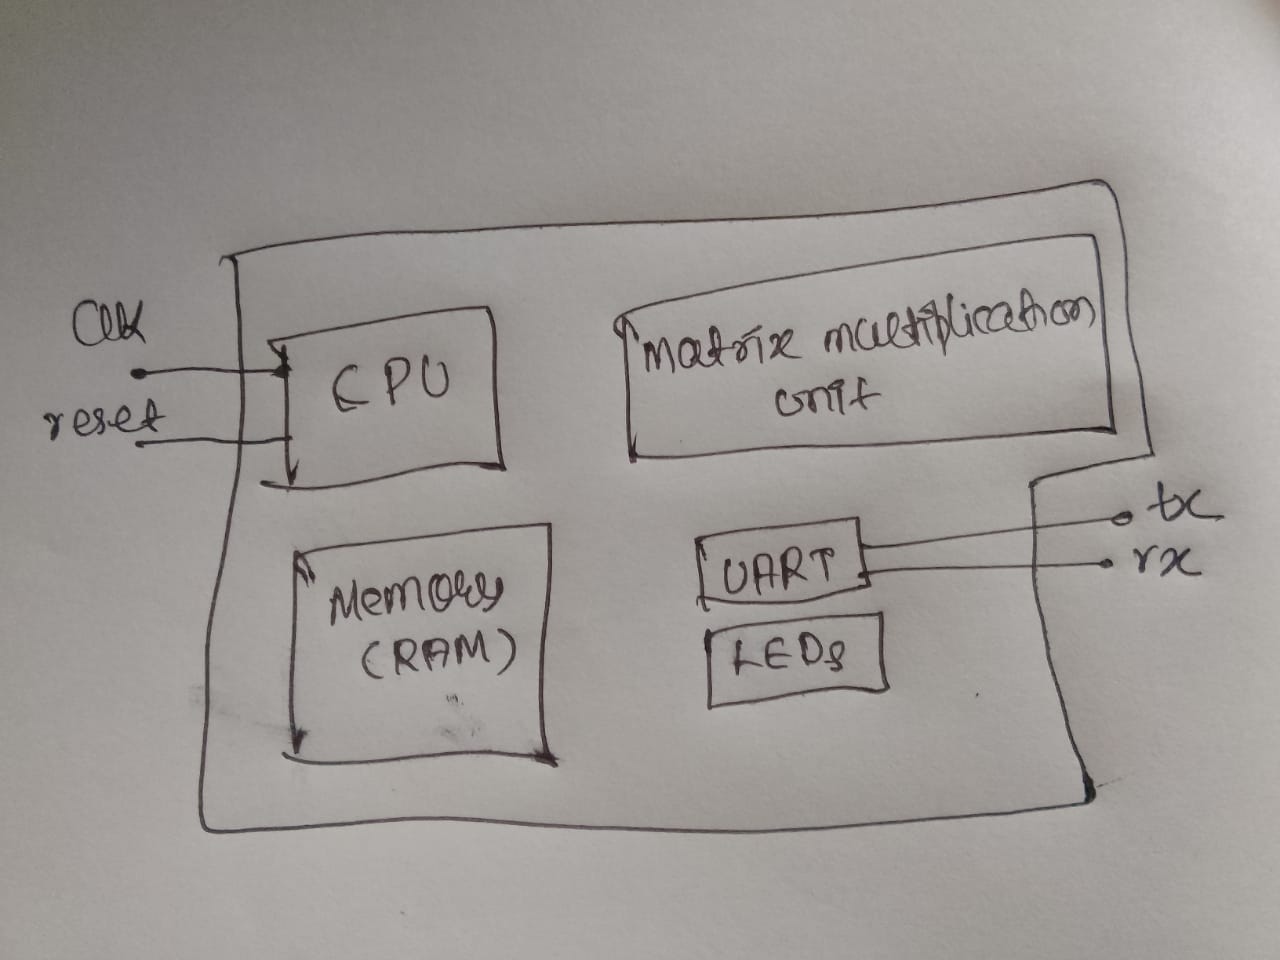 Clk
reset
CPU
matrix multiplication
unit
Memory
(RAM)
UART
LEDs
tx
rx